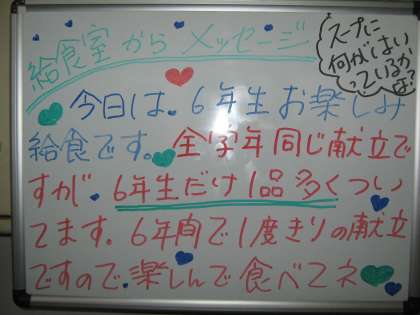 給食室からメッセージ
スープに
何がはい
っているかな?
今日は、6年生お楽しみ
給食です。全学年同じ献立で
すが、6年生だけ1品多くつい
てます。6年間で1度きりの献立
ですので、楽しんで食べてネ